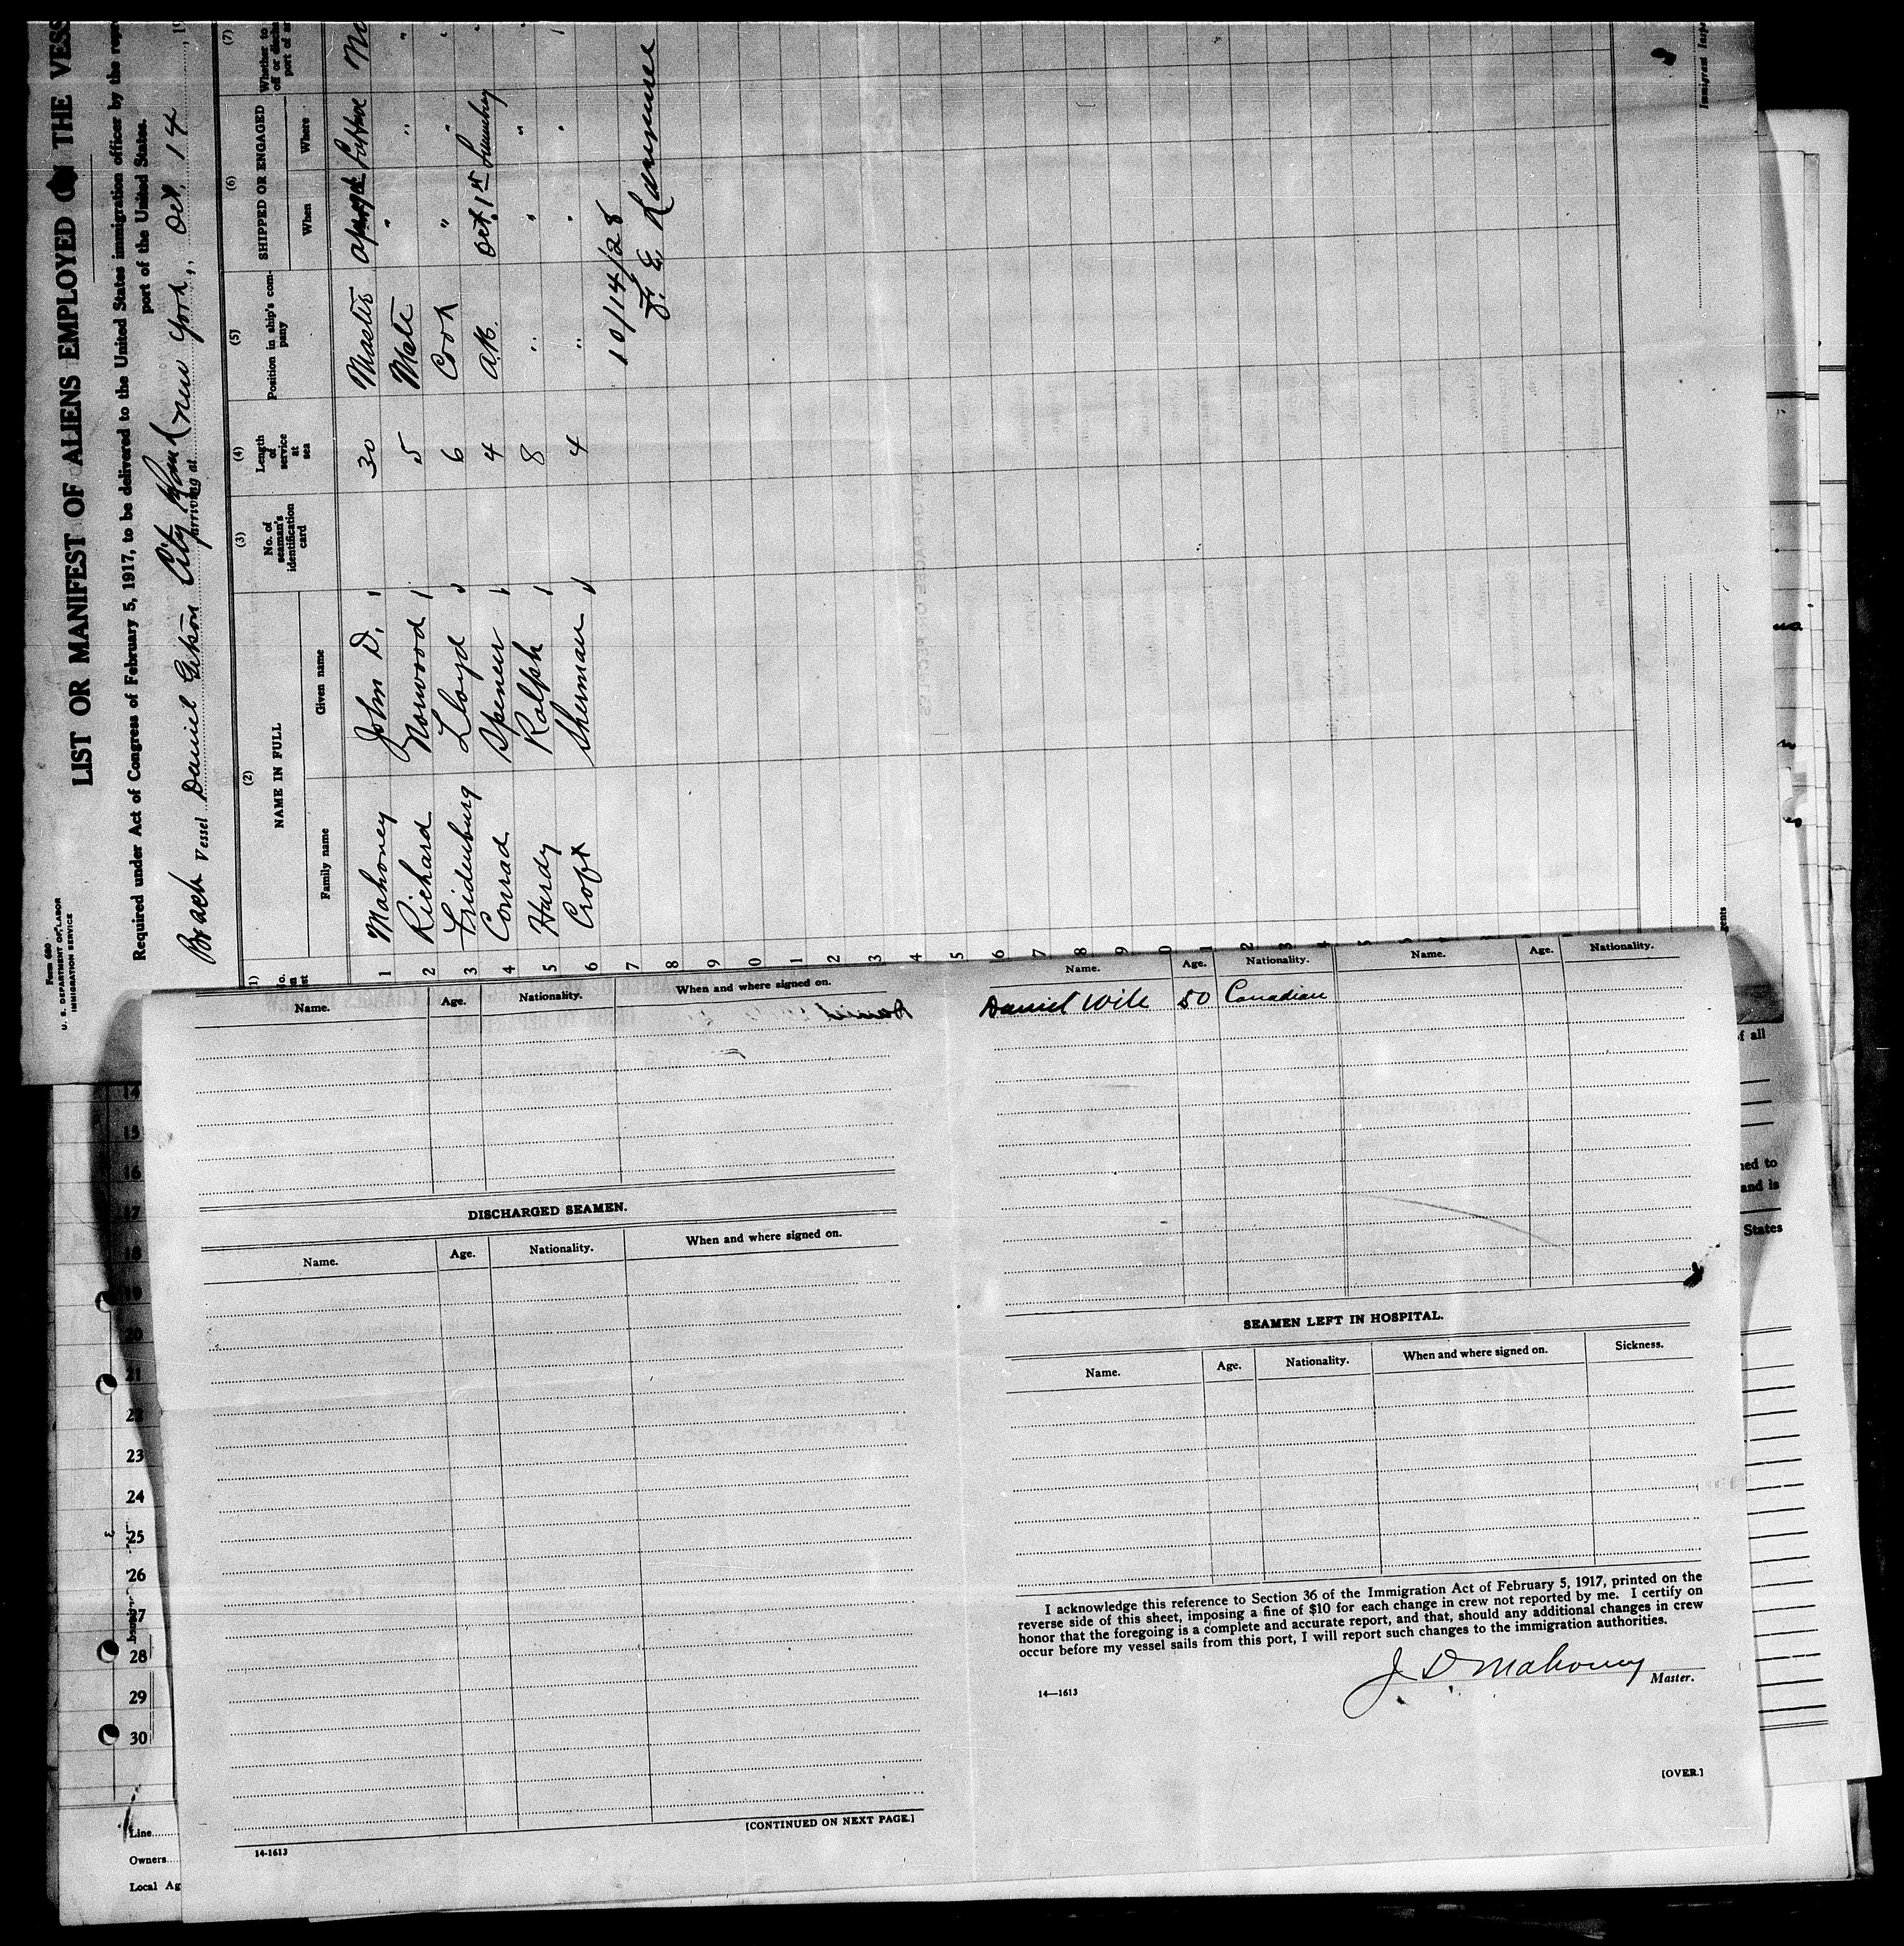 Form 680
U. S. DEPARTMENT OF LABOR
IMMIGRATION SERVICE
LIST OR MANIFEST OF ALIENS EMPLOYED THE VESS
Required under Act of Congress of February 5, 1917, to be delivered to the United States immigration officer by the
port of the United States.
Vessel Daniel City arriving at New York, Oct. 14, 19
(1) (2) (3) (4) (5) (6) (7)
NAME IN FULL No. of seaman's identification card Length of service at sea Position in ship's company SHIPPED OR ENGAGED Whether to
Family name Given name When Where
1 Mahoney John D. 30 Master
2 Richard Norwood 5 Mate " "
3 Fridenburg Lloyd 6 Cook " "
4 Conrad Spencer 4 A.B. Oct. 1st
5 Hardy Ralph 8 " " "
6 Croft Sherman 4 " " "
7
8
9
10/14/28
F. E.
Immigrant
Name. Age. Nationality. When and where signed on.
DISCHARGED SEAMEN.
Name. Age. Nationality. When and where signed on.
[CONTINUED ON NEXT PAGE.]
14-1613
Name. Age. Nationality. Name. Age. Nationality.
Daniel Wile 50 Canadian
SEAMEN LEFT IN HOSPITAL.
Name. Age. Nationality. When and where signed on. Sickness.
I acknowledge this reference to Section 36 of the Immigration Act of February 5, 1917, printed on the
reverse side of this sheet, imposing a fine of $10 for each change in crew not reported by me. I certify on
honor that the foregoing is a complete and accurate report, and that, should any additional changes in crew
occur before my vessel sails from this port, I will report such changes to the immigration authorities.
J D Mahoney
Master.
14—1613
[OVER.]
14
15
16
17
18
19
20
21
22
23
24
25
26
27
28
29
30
Line
Owners
Local Ag
of all
and is
States